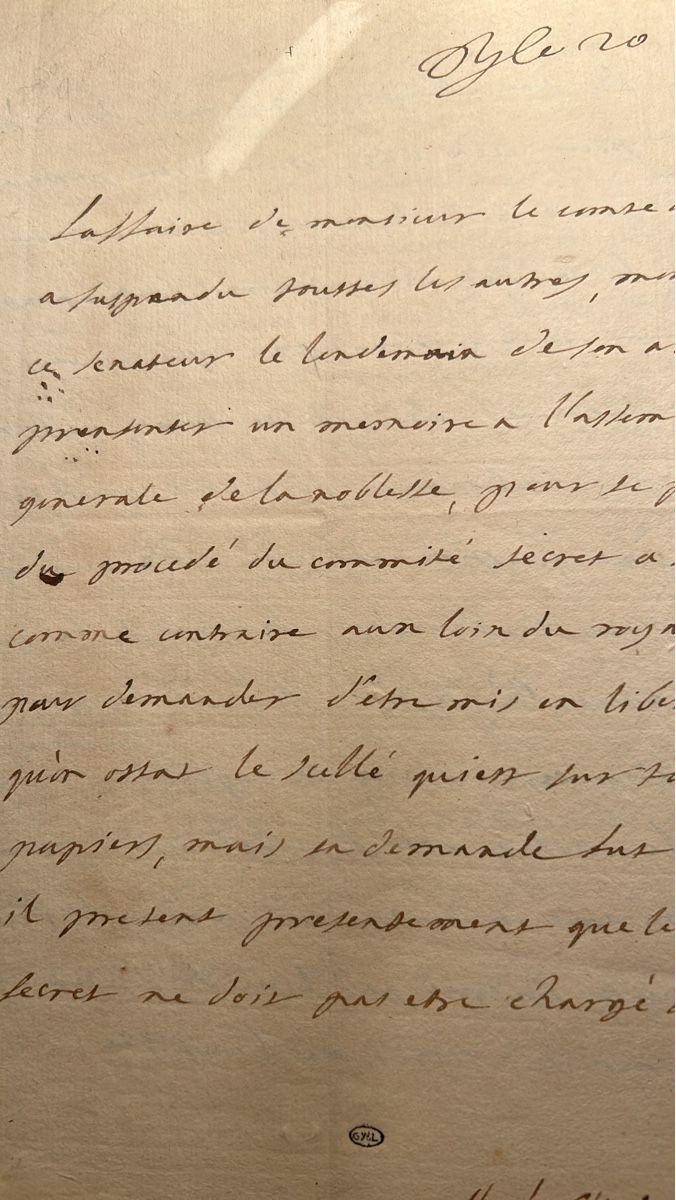 20
Laffaire de monsieur le comte
a suspendu touttes les autres,
ce senateur le lendemain de son
presenter un memoire a l'assem
generale de la noblesse, pour se p
du procedé du commité secret a
comme contraire aux loix du roya
pour demander d'etre mis en liber
qu'on ostat le scellé qui est sur
papiers, mais sa demande fut
il pretent presentement que le
secret ne doit pas etre chargé
GYLL